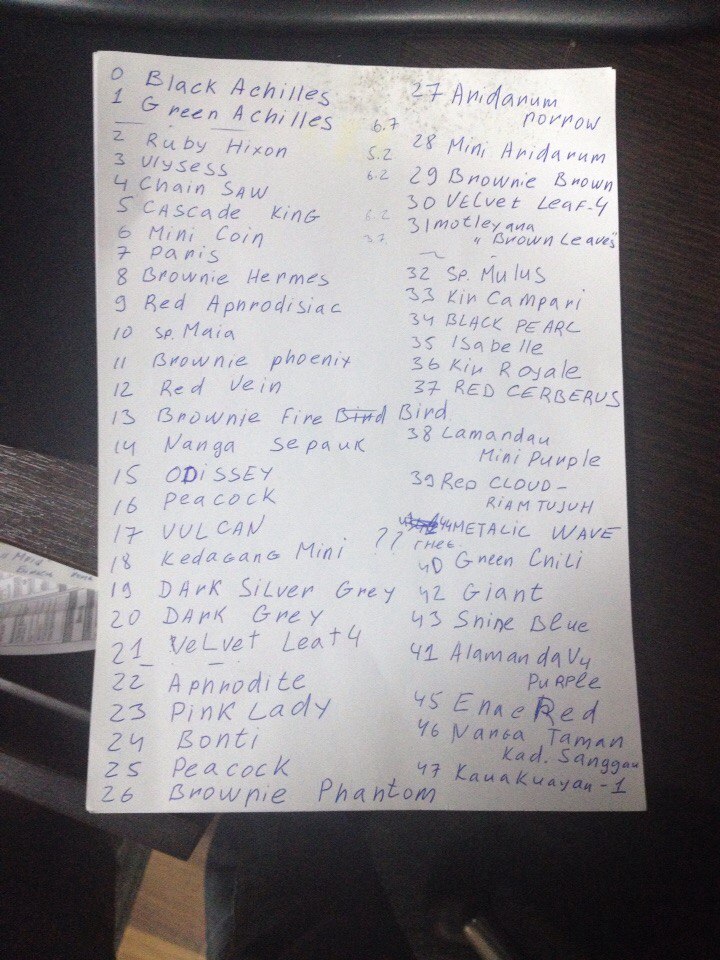 0 Black Achilles
1 Green Achilles 6.7
2 Ruby Hixon 5.2
3 Ulysess 6.2
4 Chain SAW
5 CAscade KinG 6.2
6 Mini Coin 3.7
7 Paris
8 Brownie Hermes
9 Red Aphrodisiac
10 SP. Maia
11 Brownie phoenix
12 Red Vein
13 Brownie Fire Bird Bird
14 Nanga Sepauk
15 ODiSSEY
16 Peacock
17 VULCAN
18 Kedagang Mini ??
19 DArK Silver Grey
20 DArK Grey
21 VeLvet Leaf 4
22 Aphrodite
23 Pink Lady
24 Bonti
25 Peacock
26 Brownie Phantom
27 Aridarum
norrow
28 Mini Aridarum
29 Brownie Brown
30 VELvet Leaf-4
31 motleyana
"Brown Leaves"
32 SP. Mulus
33 Kir Campari
34 BLACK PEARL
35 ISabelle
36 Kir Royale
37 RED CERBERUS
38 Lamandau
Mini Purple
39 Red CLOUD-
RIAM TUJUH
44 METALIC WAVE
40 Green Chili
42 Giant
43 Shine Blue
41 Alamanda V4
PuRPLe
45 Red
46 Nanga Taman
Kad. Sanggau
47 -1